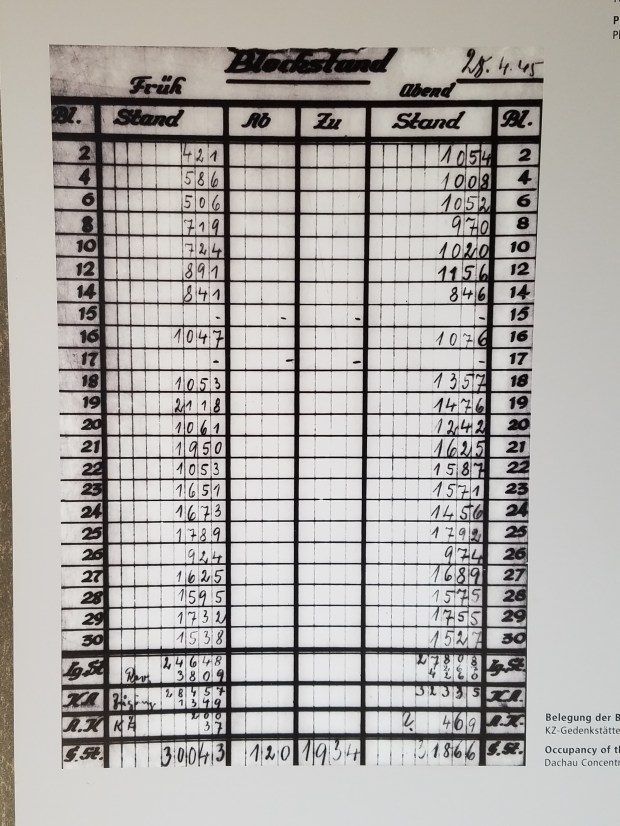 Blockstand
28.4.45
Früh Abend
Bl. Stand Ab Zu Stand Bl.
2 421 1054 2
4 586 1008 4
6 506 1052 6
8 719 970 8
10 724 1020 10
12 891 1156 12
14 841 846 14
15 - - - - 15
16 1047 1076 16
17 - - - - 17
18 1053 1357 18
19 2118 1476 19
20 1061 1242 20
21 1950 1625 21
22 1053 1587 22
23 1651 1571 23
24 1673 1456 24
25 1789 1792 25
26 924 974 26
27 1625 1689 27
28 1595 1575 28
29 1732 1755 29
30 1538 1527 30
Lg.St 24648 27808 Lg.St.
Rev. 3809
K.A 28457 32335 K.A.
1349
A.K 200 469 A.K.
KZ 37
G.St. 30043 120 1934 31866 G.St.
Belegung der B
KZ-Gedenkstätte
Occupancy of th
Dachau Concentr